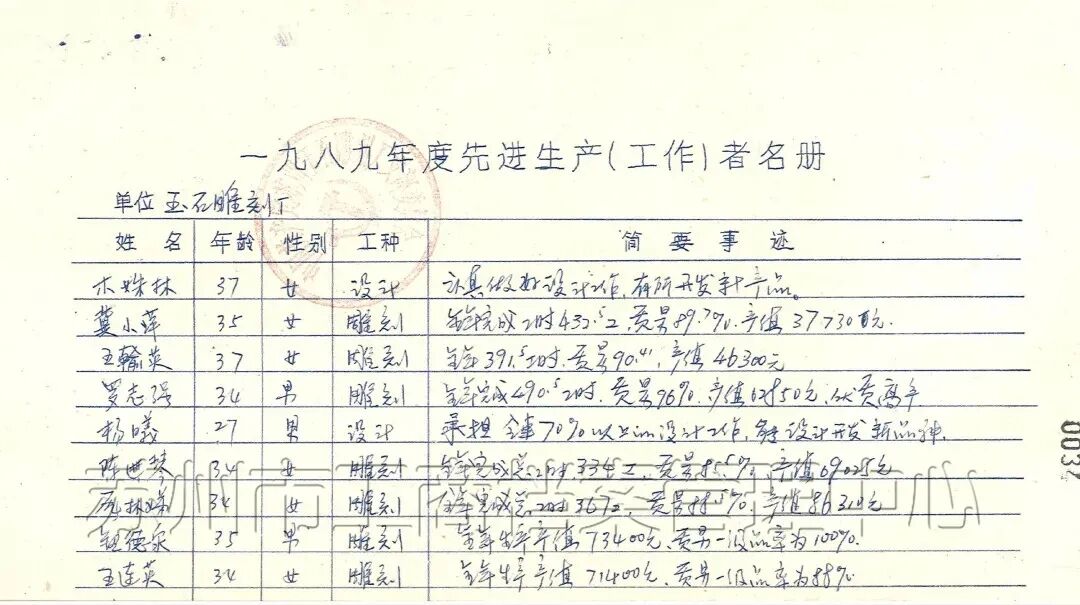 一九八九年度先进生产(工作)者名册
单位 玉石雕刻厂
姓名 年龄 性别 工种 简要事迹
林 37 女 设计 认真做好设计工作，有所开发新产品。
莫小萍 35 女 雕刻 全年完成工时432.5工，质量89.7%，产值37730元.
王输英 37 女 雕刻 全年391.5工时，质量90.41，产值46300元
罗志强 34 男 雕刻 全年完成490.5工时，质量96%，产值62850元，优质高产
杨曦 27 男 设计 承担全年70%以上的设计工作，设计开发新品种.
陈 琴 34 女 雕刻 全年完成总工时334工，质量85.5%，产值69025元
林妹 34 女 雕刻 全年完成总工时367工，质量88.5%，产值86310元
德泉 35 男 雕刻 全年生产产值73400元，质量一级品率为100%.
王莲英 34 女 雕刻 全年生产产值71400元，质量一级品率为88%
苏州市工商档案管理中心
003